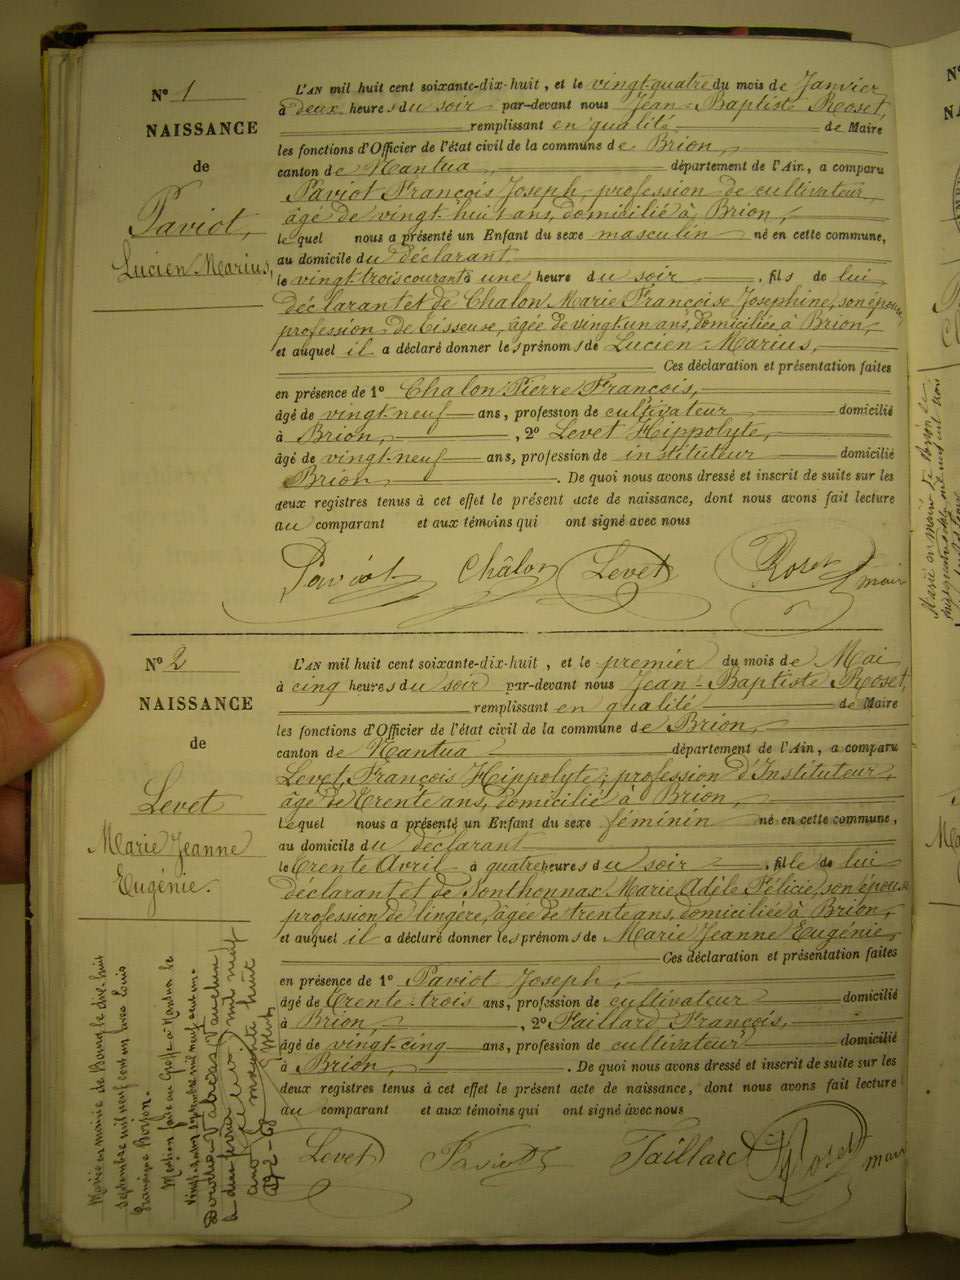 N° 1
NAISSANCE
de
Paviot,
Lucien Marius,
L'AN mil huit cent soixante-dix-huit, et le vingt-quatre du mois de Janvier
à deux heures du soir par-devant nous Jean-Baptiste Roset,
remplissant en qualité de Maire
les fonctions d'Officier de l'état civil de la commune de Brion,
canton de Nantua, département de l'Ain, a comparu
Paviot François Joseph, profession de cultivateur,
âgé de vingt-huit ans, domicilié à Brion,
lequel nous a présenté un Enfant du sexe masculin né en cette commune,
au domicile du déclarant
le vingt-trois courant à une heure du soir, fils de lui
déclarant et de Chalon Marie Françoise Josephine, son épouse,
profession de Tisseuse, âgée de vingt un ans, domiciliée à Brion,
et auquel il a déclaré donner les prénoms de Lucien-Marius,
Ces déclaration et présentation faites
en présence de 1° Chalon Pierre François,
âgé de vingt-neuf ans, profession de cultivateur domicilié
à Brion, , 2° Levet Hippolyte,
âgé de vingt-neuf ans, profession de instituteur domicilié
Brion. De quoi nous avons dressé et inscrit de suite sur les
deux registres tenus à cet effet le présent acte de naissance, dont nous avons fait lecture
au comparant et aux témoins qui ont signé avec nous
Paviot Châlon Levet Roset maire
N° 2
NAISSANCE
de
Levet
Marie Jeanne
Eugénie.
L'AN mil huit cent soixante-dix-huit, et le premier du mois de Mai
à cinq heures du soir par-devant nous Jean-Baptiste Roset,
remplissant en qualité de Maire
les fonctions d'Officier de l'état civil de la commune de Brion,
canton de Nantua département de l'Ain, a comparu
Levet, François Hippolyte, profession d'Instituteur,
âgé de Trente ans, domicilié à Brion,
lequel nous a présenté un Enfant du sexe féminin né en cette commune,
au domicile du déclarant
le Trente Avril à quatre heures du soir, fille de lui
déclarant et de Sonthonnax Marie Adèle Félicie, son épouse
profession de lingère, âgée de trente ans, domiciliée à Brion,
et auquel il a déclaré donner les prénoms de Marie Jeanne Eugénie,
Ces déclaration et présentation faites
en présence de 1° Paviot Joseph,
âgé de Trente-trois ans, profession de cultivateur domicilié
à Brion, , 2° Taillard François,
âgé de vingt-cinq ans, profession de cultivateur domicilié
à Brion, . De quoi nous avons dressé et inscrit de suite sur les
deux registres tenus à cet effet le présent acte de naissance, dont nous avons fait lecture
au comparant et aux témoins qui ont signé avec nous
Levet Paviot Taillard Roset maire
Mariée en mairie de Bourg le dix-huit
septembre mil neuf cent un avec Louis
François
Mention faite au Greffe à Nantua le
vingt septembre mil neuf cent un.
Décédée à Vaucluse
le dix février mil neuf
cent soixante huit